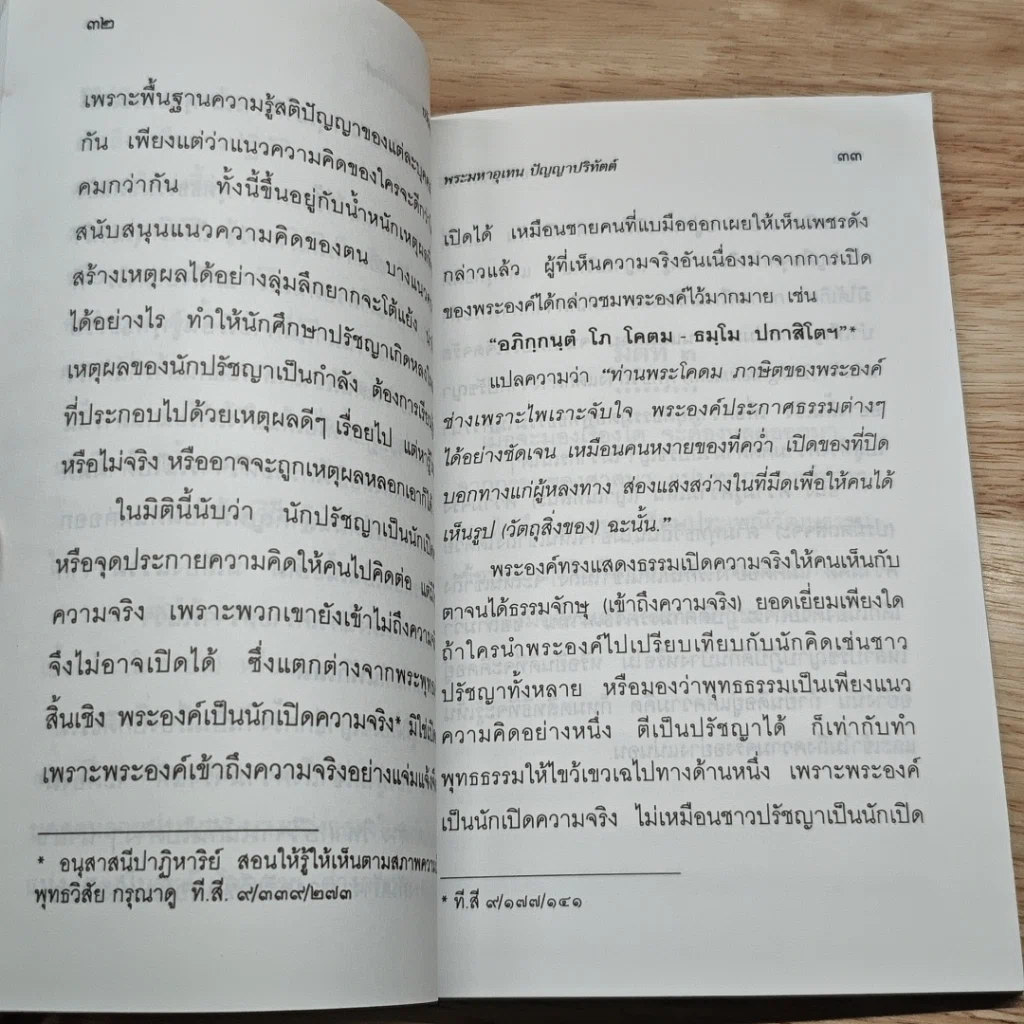 ๓๒
เพราะพื้นฐานความรู้สติปัญญาของแต่ละบุคค
กัน เพียงแต่ว่าแนวความคิดของใครจะดีกว่า
คมกว่ากัน ทั้งนี้ขึ้นอยู่กับน้ำหนักเหตุผล
สนับสนุนแนวความคิดของตน บางแนว
สร้างเหตุผลได้อย่างลุ่มลึกยากจะโต้แย้ง
ได้อย่างไร ทำให้นักศึกษาปรัชญาเกิดหลง
เหตุผลของนักปรัชญาเป็นกำลัง ต้องการเรียน
ที่ประกอบไปด้วยเหตุผลดีๆ เรื่อยไป แต่หารู้
หรือไม่จริง หรืออาจจะถูกเหตุผลหลอกเอาก็
ในมิตินี้นับว่า นักปรัชญาเป็นนักเปิด
หรือจุดประกายความคิดให้คนไปคิดต่อ แต่
ความจริง เพราะพวกเขายังเข้าไม่ถึงความ
จึงไม่อาจเปิดได้ ซึ่งแตกต่างจากพระพุทธ
สิ้นเชิง พระองค์เป็นนักเปิดความจริง* มิใช่
เพราะพระองค์เข้าถึงความจริงอย่างแจ่มแจ้ง
* อนุสาสนีปาฏิหาริย์ สอนให้รู้ให้เห็นตามสภาพความ
พุทธวิสัย กรุณาดู ที.สี. ๙/๓๓๙/๒๗๓
พระมหาอุเทน ปัญญาปริทัตต์
๓๓
เปิดได้ เหมือนชายคนที่แบมือออกเผยให้เห็นเพชรดัง
กล่าวแล้ว ผู้ที่เห็นความจริงอันเนื่องมาจากการเปิด
ของพระองค์ได้กล่าวชมพระองค์ไว้มากมาย เช่น
“อภิกฺกนฺตํ โภ โคตม - ธมฺโม ปกาสิโตฯ”*
แปลความว่า “ท่านพระโคดม ภาษิตของพระองค์
ช่างเพราะไพเราะจับใจ พระองค์ประกาศธรรมต่างๆ
ได้อย่างชัดเจน เหมือนคนหงายของที่คว่ำ เปิดของที่ปิด
บอกทางแก่ผู้หลงทาง ส่องแสงสว่างในที่มืดเพื่อให้คนได้
เห็นรูป (วัตถุสิ่งของ) ฉะนั้น.”
พระองค์ทรงแสดงธรรมเปิดความจริงให้คนเห็นกับ
ตาจนได้ธรรมจักษุ (เข้าถึงความจริง) ยอดเยี่ยมเพียงใด
ถ้าใครนำพระองค์ไปเปรียบเทียบกับนักคิดเช่นชาว
ปรัชญาทั้งหลาย หรือมองว่าพุทธธรรมเป็นเพียงแนว
ความคิดอย่างหนึ่ง ตีเป็นปรัชญาได้ ก็เท่ากับทำ
พุทธธรรมให้ไขว้เขวเฉไปทางด้านหนึ่ง เพราะพระองค์
เป็นนักเปิดความจริง ไม่เหมือนชาวปรัชญาเป็นนักเปิด
* ที.สี ๙/๑๗๗/๑๔๑